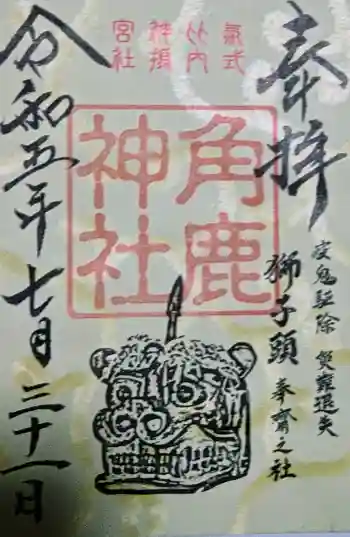 奉拝
疫鬼駆除 災難退失
獅子頭 奉齋之社
式内
氣比
神
宮摂社
角鹿
神社
令和五年七月三十一日